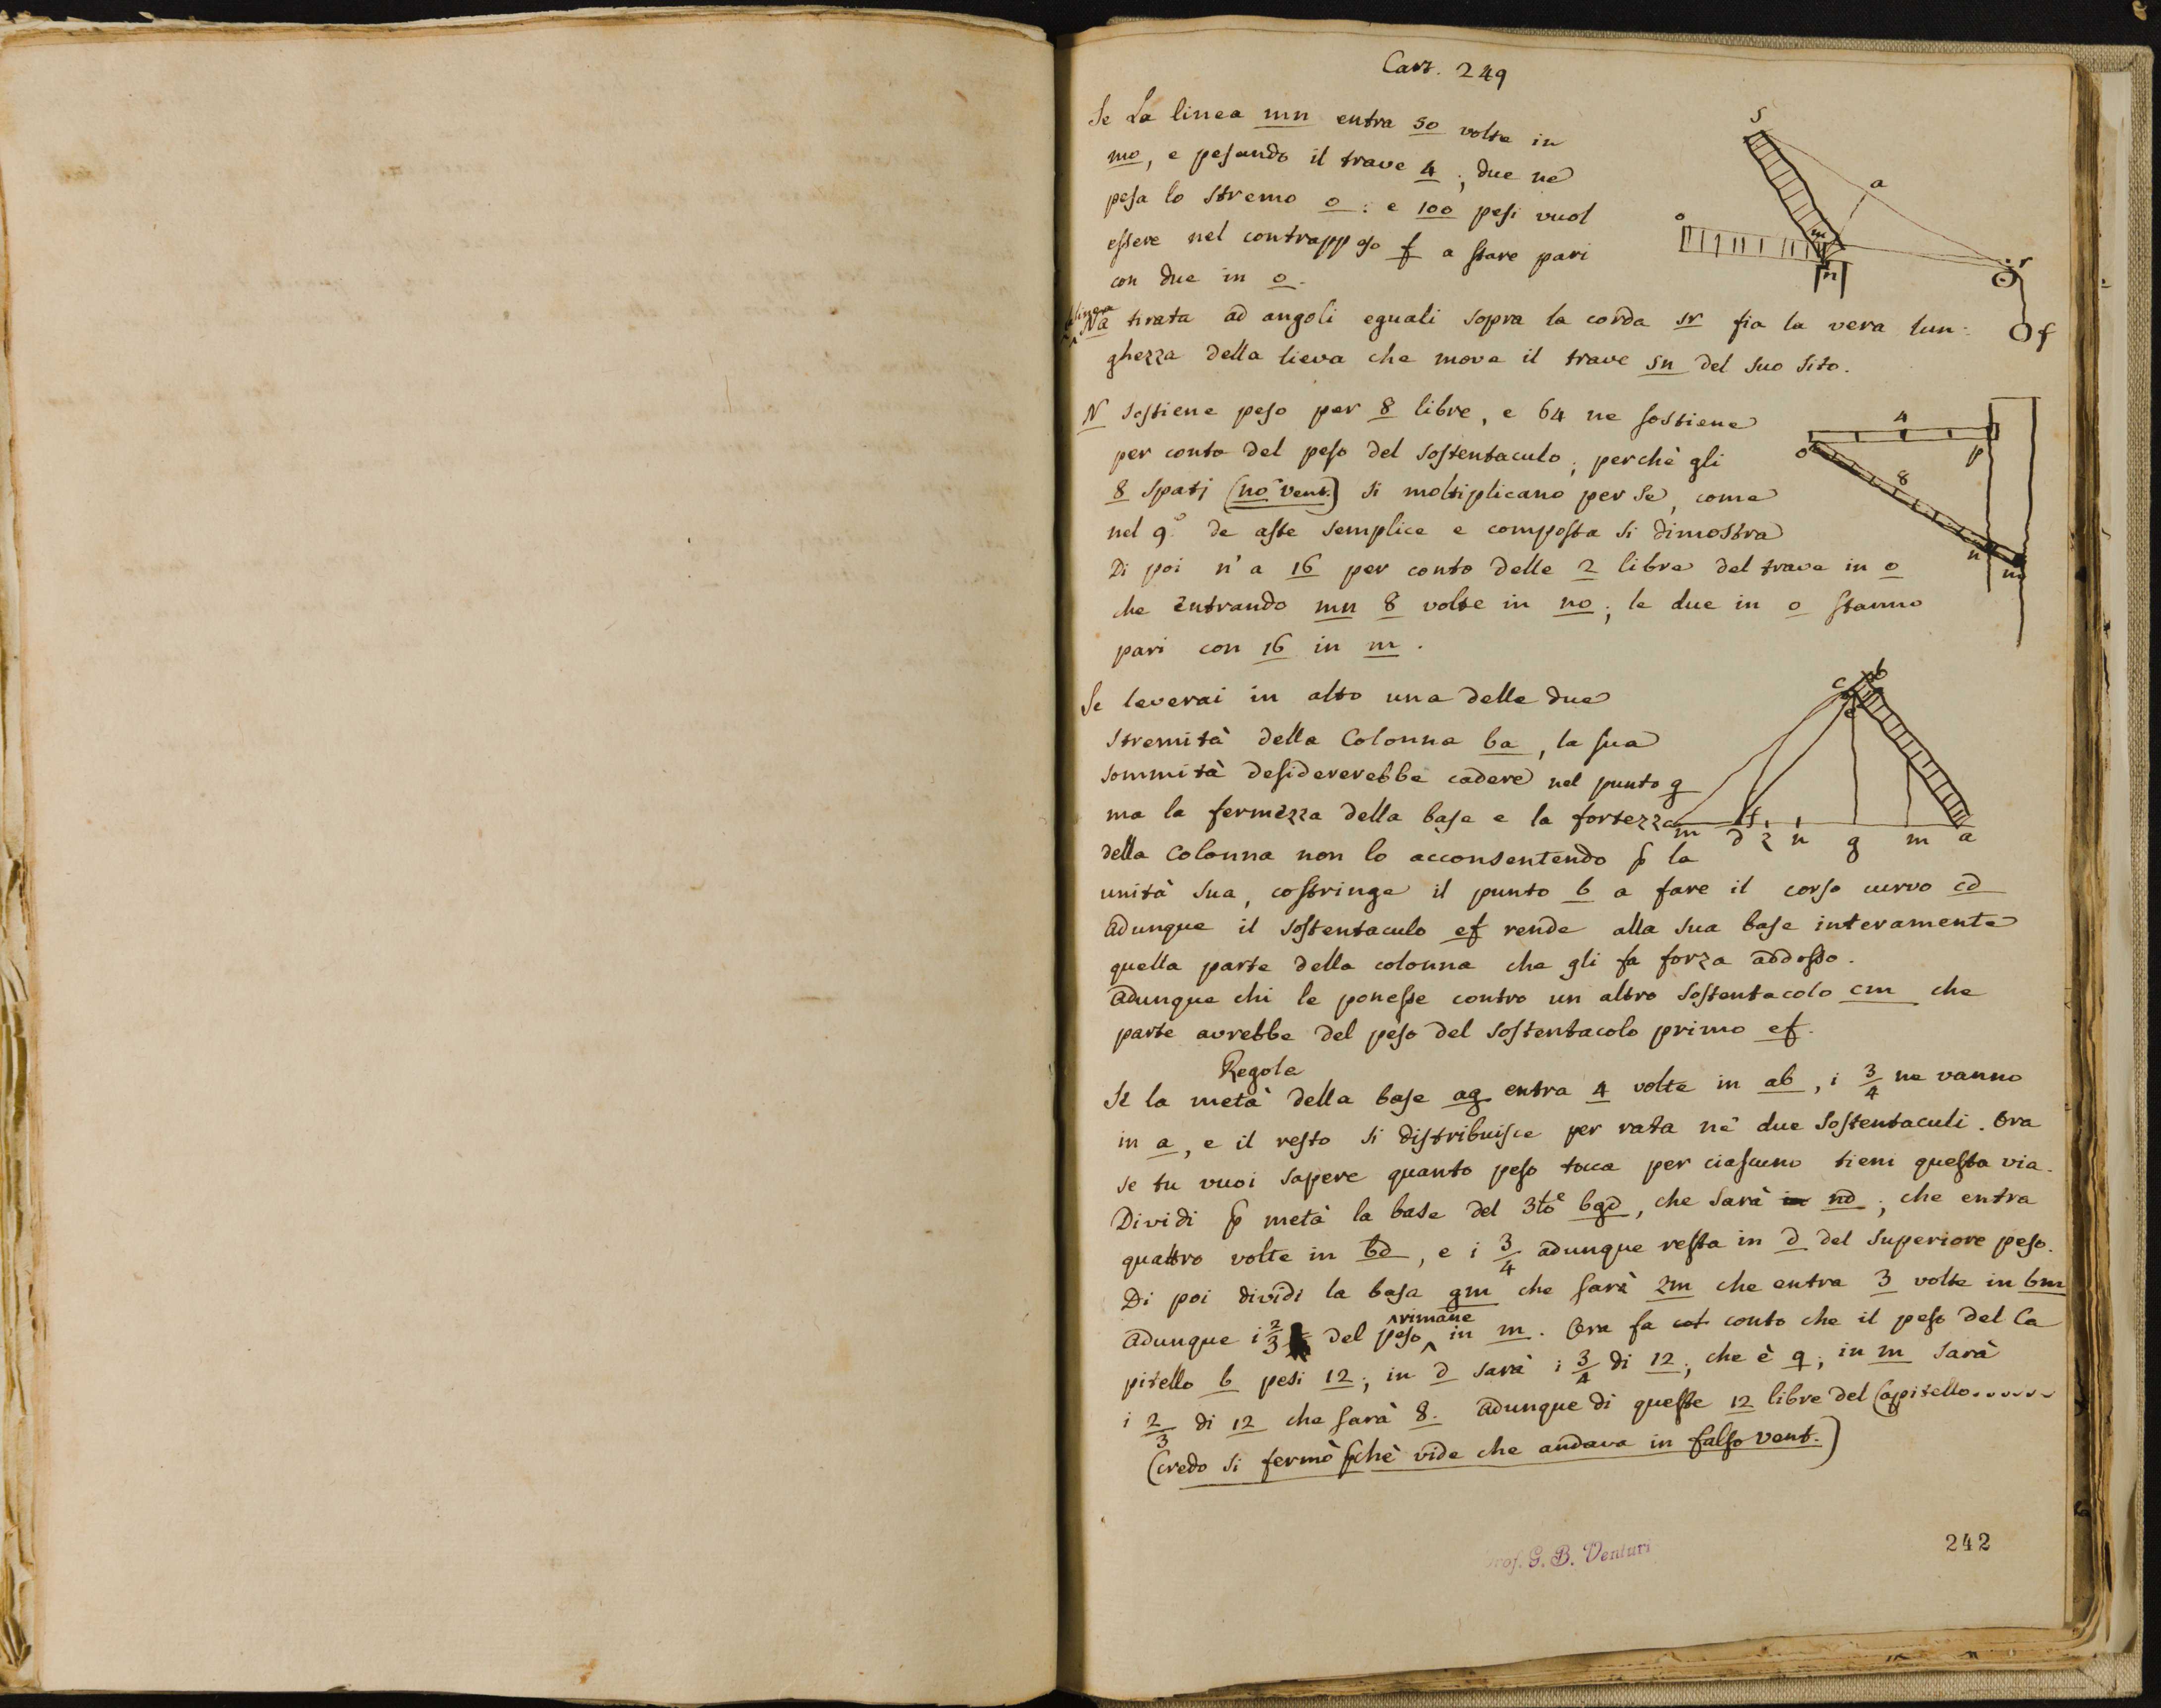 Cart. 249
Se La linea mn entra 50 volte in
mo, e pesando il trave 4; due ne
pesa lo stremo o: e 100 pesi vuol
essere nel contrappeso f a stare pari
con due in o.
la linea
Na tirata ad angoli eguali sopra la corda sr fia la vera lun-
ghezza della lieva che move il trave sn del suo sito.
N sostiene peso per 8 libre, e 64 ne sostiene
per conto del peso del sostentaculo; perchè gli
8 spatj (no Vent.) si moltiplicano per se, come
nel 9.° de aste semplice e composta si dimostra
Di poi n'a 16 per conto delle 2 libre del trave in o
che entrando mn 8 volte in no; le due in o stanno
pari con 16 in m.
Se leverai in alto una delle due
stremità della Colonna ba, la sua
sommità desidererebbe cadere nel punto g
ma la fermezza della base e la fortezza
della Colonna non lo acconsentendo p la
unità sua, costringe il punto b a fare il corso curvo cd
adunque il sostentaculo ef rende alla sua base interamente
quella parte della colonna che gli fa forza addosso.
adunque chi le ponesse contro un altro sostentacolo cm che
parte avrebbe del peso del sostentacolo primo ef.
Regola
Se la metà della base ag entra 4 volte in ab, i 3/4 ne vanno
in a, e il resto si distribuisce per rata ne due sostentaculi. Ora
se tu vuoi sapere quanto peso tocca per ciascuno tieni questa via.
Dividi p metà la base del 3to bgd, che sarà in nd; che entra
quattro volte in bd, e i 3/4 adunque resta in d del superiore peso.
Di poi dividi la basa gm che sarà 2m che entra 3 volte in bm
adunque i 2/3 del peso rimane in m. Ora fa cot conto che il peso del Ca
pitello b pesi 12; in d sarà i 3/4 di 12; che è 9; in m sarà
i 2/3 di 12 che sarà 8. adunque di queste 12 libre del Capitello......
(credo si fermò pchè vide che andava in falso Vent.)
s
a
o
m
n
r
f
4
o
p
8
n
m
c
b
e
m
d
f
z
n
g
m
a
Prof. G. B. Venturi
242